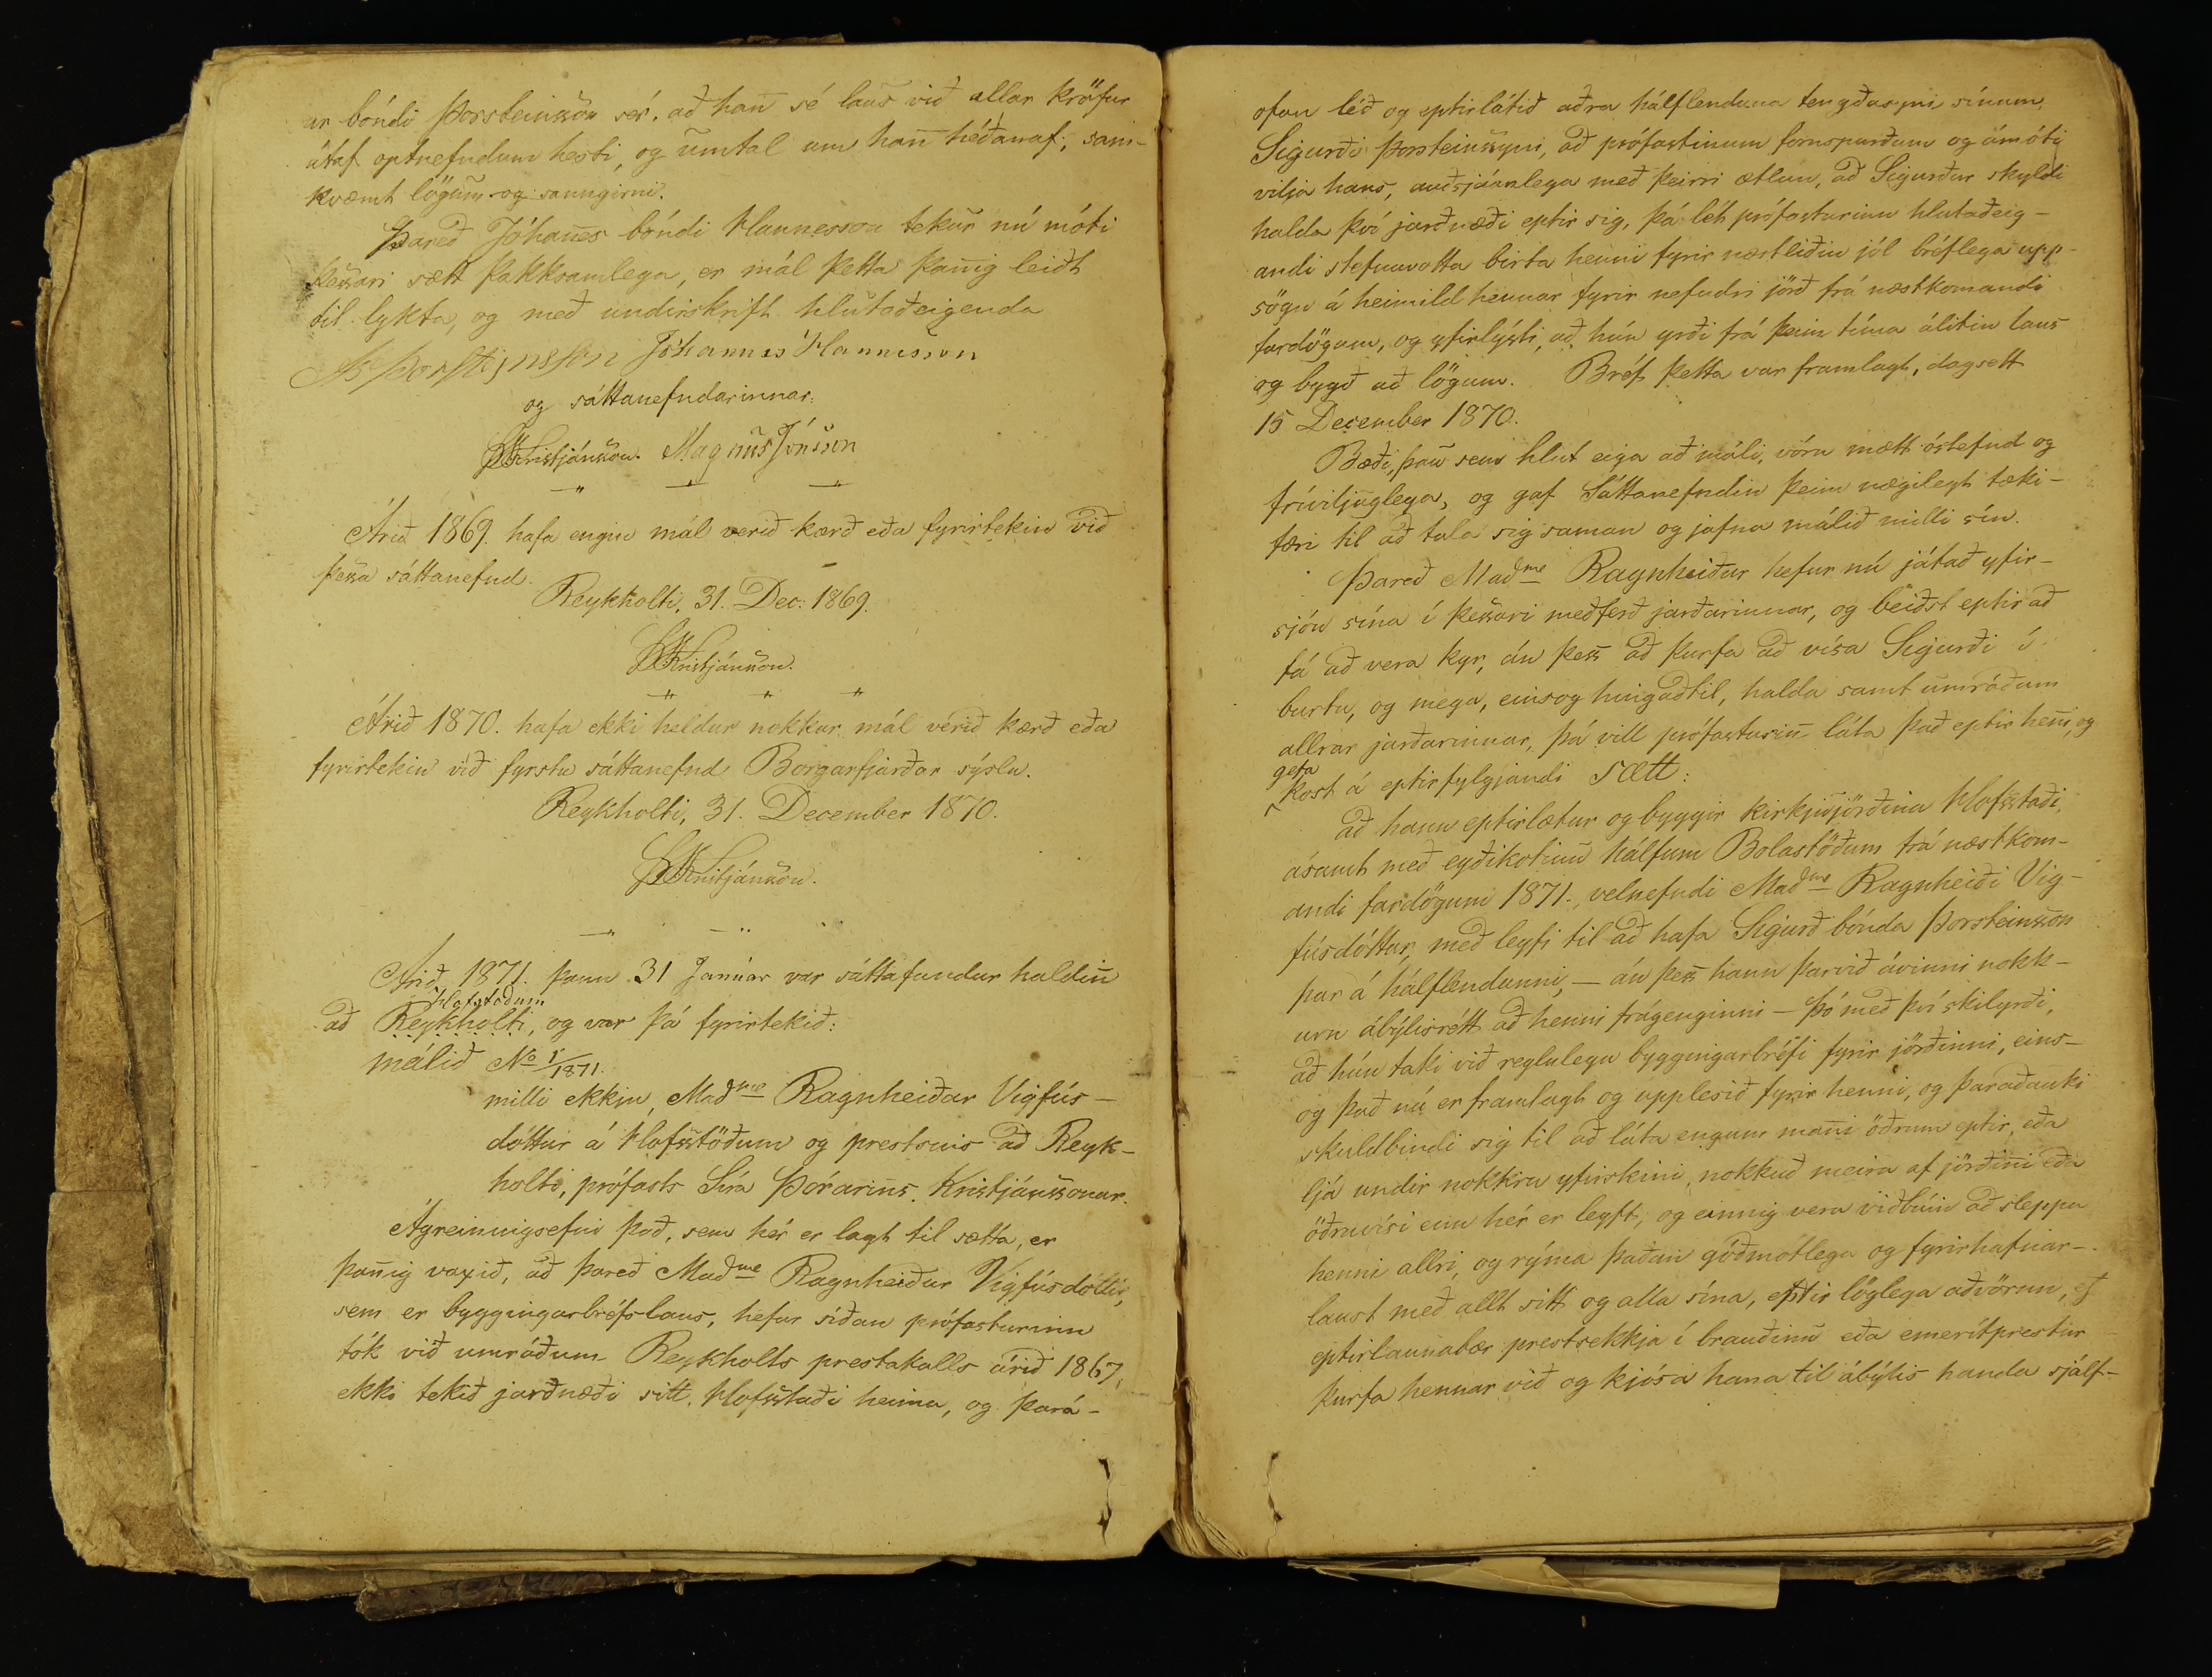 ur bóndi Þorsteinsson sér, að han̄ sé laus við allar kröfur
útaf optnefndum hesti, og umtal um han̄ héðanaf, sam-
kvæmt lögum og sanngirni.
Þareð Jóhan̄es bóndi Hannesson tekur nú móti
þessari sætt þakksamlega, er mál þetta þan̄ig leiðt
til lykta, og með undirskrift hlutaðeigenda
Þorsteinsson Jóhannes Hannesson
og sáttanefndarinnar:
Kristjánsson. Magnús Jónsson
Árið 1869. hafa engin mál verið kærð eða fyrirtekin við
þessa sáttanefnd.
Reykholti, 31. Dec: 1869.
Kristjánsson.
Árið 1870. hafa ekki heldur nokkur mál verið kærð eða
fyrirtekin við fyrstu sáttanefnd Borgarfjarðar sýslu.
Reykholti, 31. December 1870.
Kristjánsson.
Árið 1871. þann 31 Janúar var sáttafundur haldin̄
Hofstöðum
að Reykholti, og var þá fyrirtekið:
málið No 1/1871.
milli ekkju, Madme Ragnheiðar Vigfús-
dóttur á Hofsstöðum og prestsins að Reyk-
holti, prófasts Síra Þórarins Kristjánssonar.
Ágreiningsefni það, sem hér er lagt til sætta, er
þan̄ig vaxið, að þareð Madme Ragnheiður Vigfúsdóttir,
sem er byggingarbréfslaus, hefur síðan prófasturinn
tók við umráðum Reykholts prestakalls árið 1867,
ekki tekið jarðnæði sitt, Hofsstaði heima, og þará-
ofan léð og eptirlátið aðra hálflenduna tengdasyni sínum,
Sigurði Þorsteinssyni, að prófastinum fornspurðum og ámóti
vilja hans, auðsjáanlega með þeirri ætlun, að Sigurður skyldi
halda því jarðnæði eptir sig, þá lét prófasturinn hlutaðeig-
andi stefnuvotta birta henni fyrir næstliðin jól bréflega upp-
sögn á heimild hennar fyrir nefndri jörð frá næstkomandi
fardögum, og yfirlýsti, að hún yrði frá þeim tíma álitin laus
og bygð að lögum. Bréf þetta var framlagt, dagsett
15 December 1870.
Bæði, þau sem hlut eiga að máli, vóru mætt óstefnd og
fríviljuglega, og gaf Sáttanefndin þeim nægilegt tæki-
færi til að tala sig saman og jafna málið milli sín.
Þareð Madme Ragnheiður hefur nú játað yfir-
sjón sína í þessari meðferð jarðarinnar, og beiðst eptir að
fá að vera kyr, án þess að þurfa að vísa Sigurði í
burtu, og mega, einsog hingaðtil, halda samt umráðum
allrar jarðarinnar, þá vill prófasturin̄ láta það eptir hen̄i, og
gefa
kost á eptirfylgjandi sætt:
að hann eptirlætur og byggir kirkjujörðina Hofsstaði,
ásamt með eyðikotinu hálfum Bolastöðum frá næstkom-
andi fardögum 1871., velnefndi Madme Ragnheiði Vig-
fúsdóttur, með leyfi til að hafa Sigurð bónda Þorsteinsson
þar á hálflendunni, — án þess hann þarvið ávinni nokk-
urn ábýlisrétt að henni frágenginni — þó með því skilyrði,
að hún taki við reglulegu byggingarbréfi fyrir jörðinni, eins-
og það nú er framlagt og upplesið fyrir henni, og þaraðauki
skuldbindi sig til að láta engum man̄i öðrum eptir, eða
ljá undir nokkru yfirskini, nokkuð meira af jörðin̄i eða
öðruvísi enn hér er leyft, og einnig vera viðbúin að sleppa
henni allri, og rýma þaðan góðmótlega og fyrirhafnar-
laust með allt sitt og alla sína, eptir löglega aðvörun, ef
eptirlaunabær prestsekkja í brauðinu eða emerítprestur
þurfa hennar við og kjósa hana til ábýlis handa sjálf-